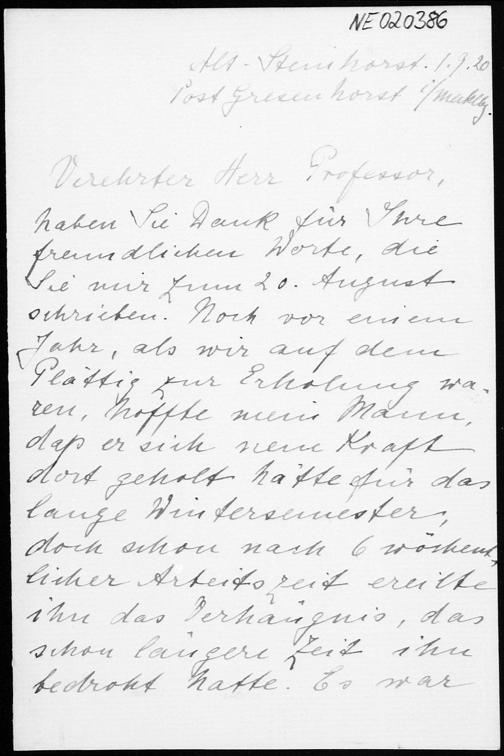 NE020386
Alt-Steinhorst. 1.9.20
Post Gresenhorst i/Mecklbg.
Verehrter Herr Professor,
haben Sie Dank für Ihre
freundlichen Worte, die
Sie mir zum 20. August
schrieben. Noch vor einem
Jahr, als wir auf dem
Plättig zur Erholung wa-
ren, hoffte mein Mann,
daß er sich neue Kraft
dort geholt hätte für das
lange Wintersemester,
doch schon nach 6 wöchent-
licher Arbeitszeit ereilte
ihn das Verhängnis, das
schon längere Zeit ihn
bedroht hatte. Es war